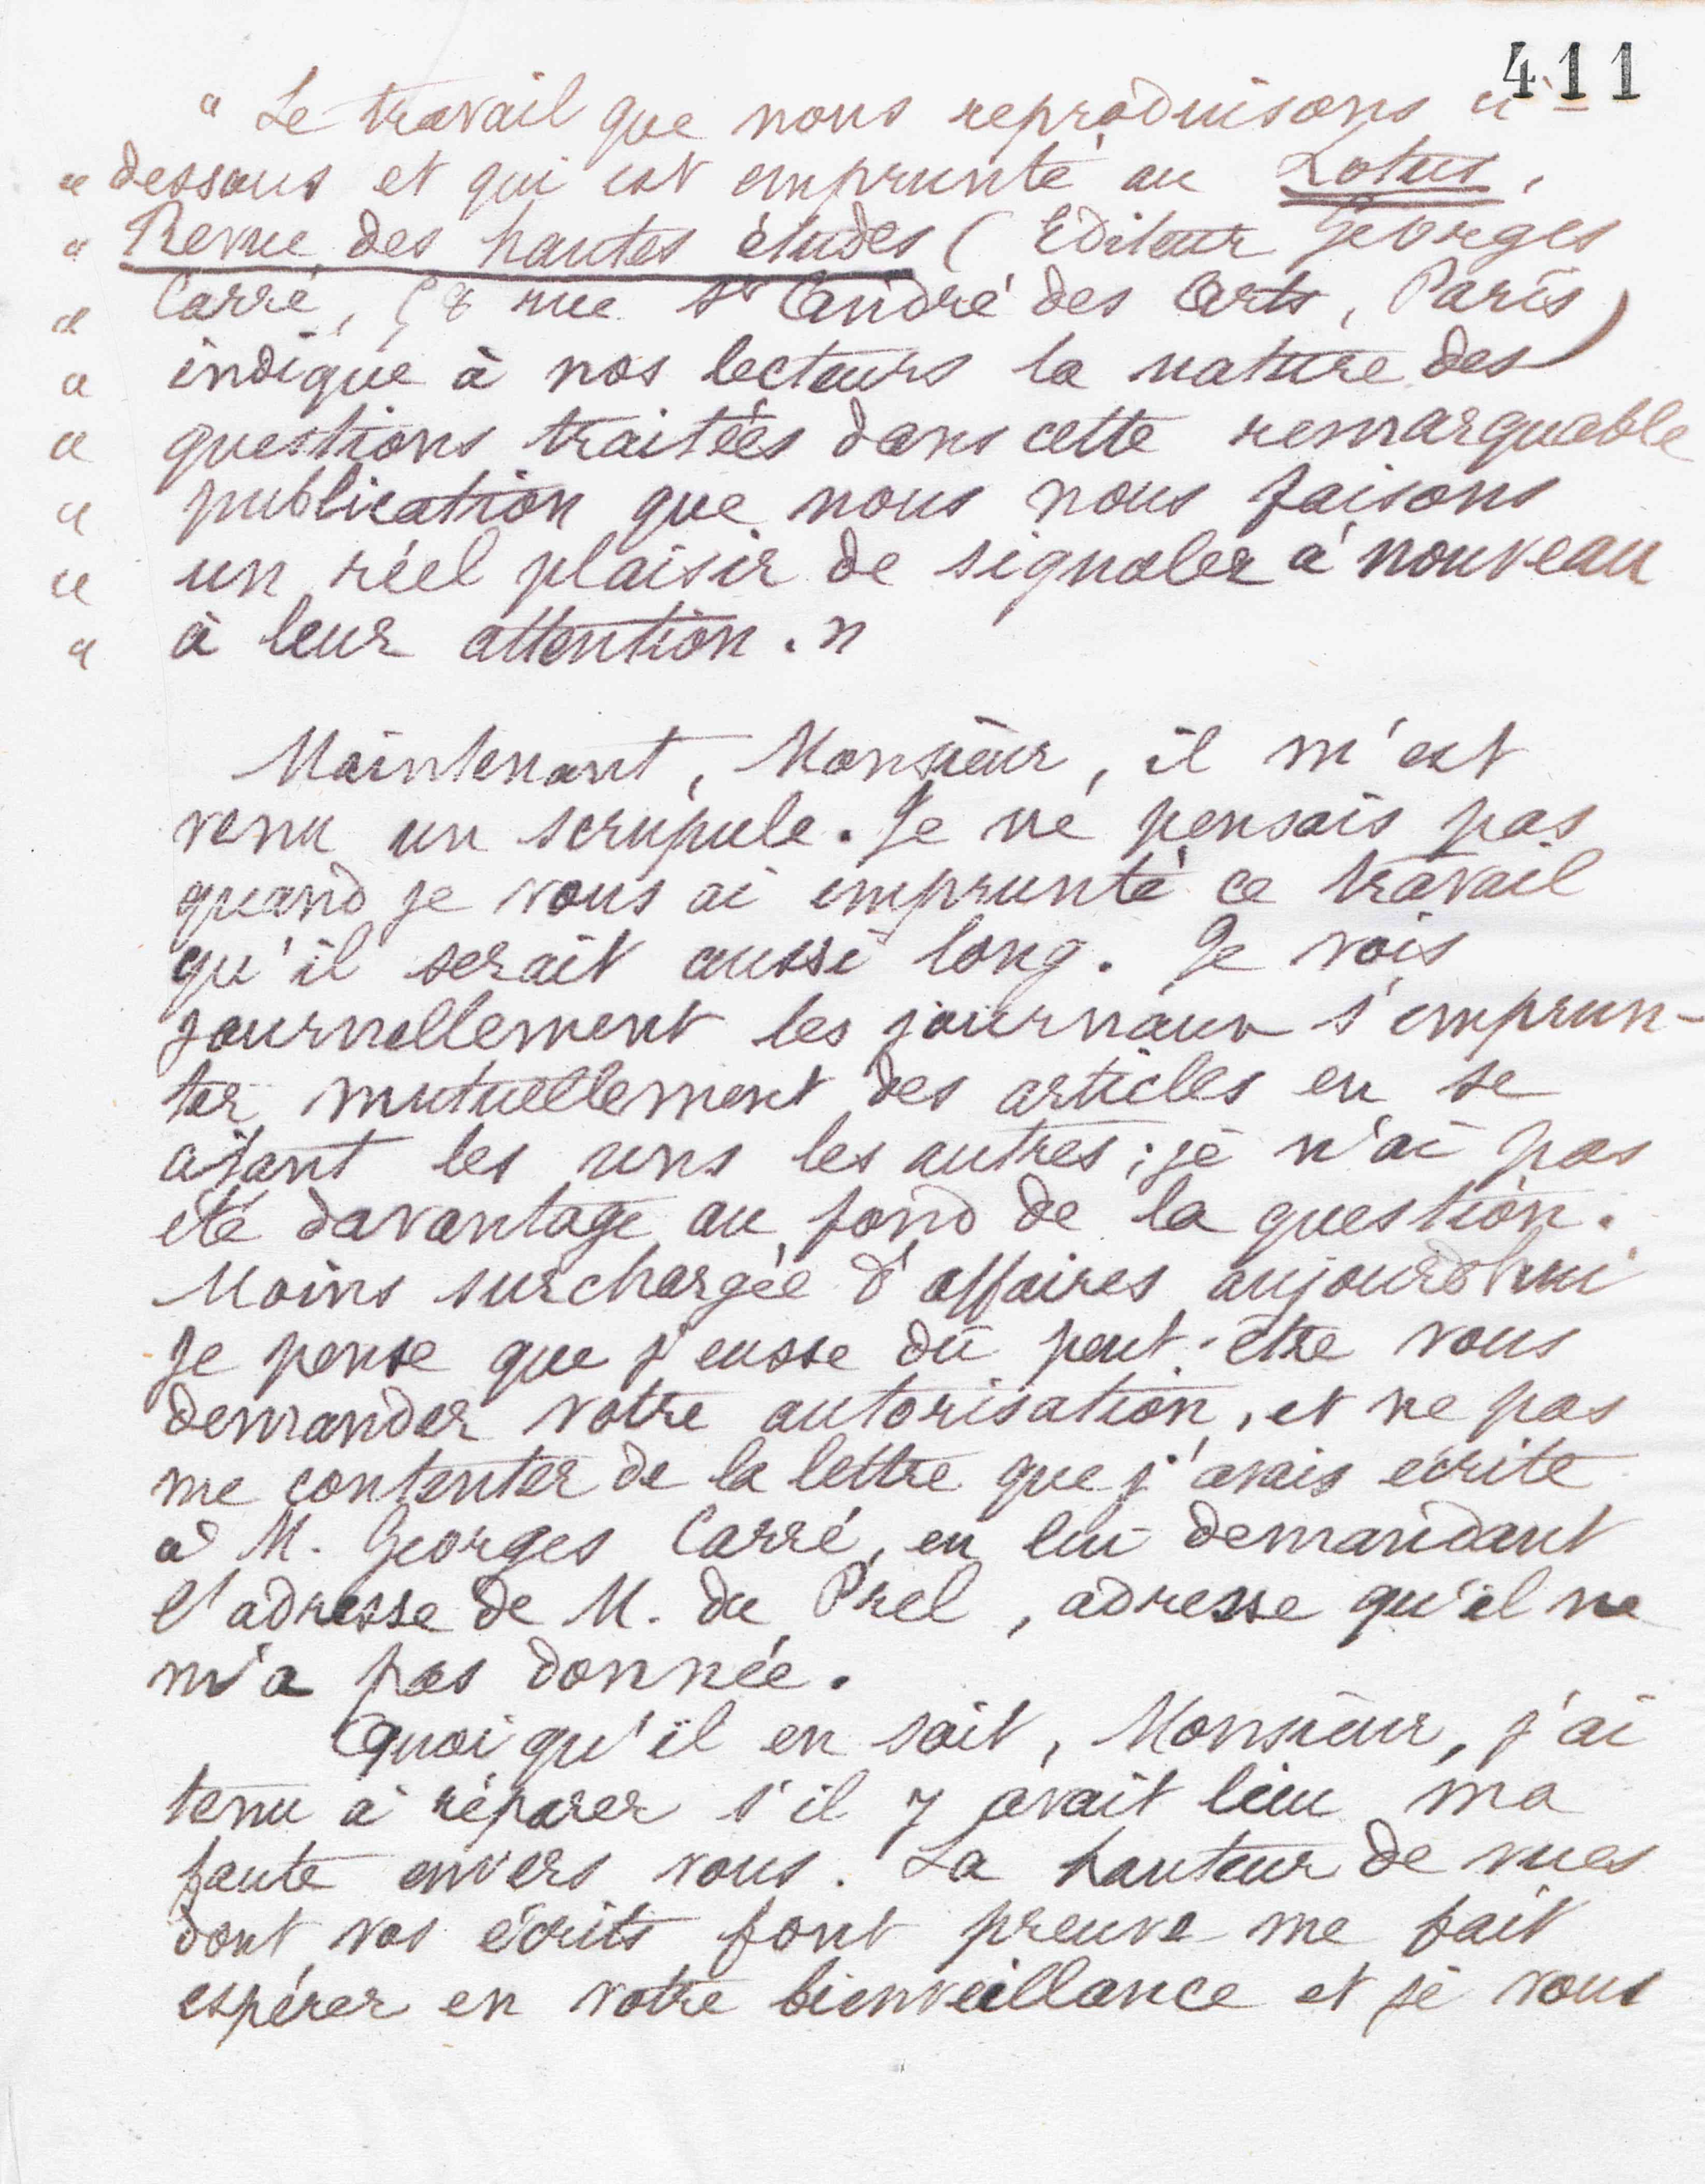 411
" Le travail que nous reproduisons ci-
" dessous et qui est emprunté au Lotus,
" Revue des hautes études (Editeur Georges
" Carré, 58 rue St André des Arts, Paris)
" indique à nos lecteurs la nature des
" questions traitées dans cette remarquable
" publication que nous nous faisons
" un réel plaisir de signaler à nouveau
" à leur attention. "
Maintenant, Monsieur, il m'est
venu un scrupule. Je ne pensais pas
quand je vous ai emprunté ce travail
qu'il serait aussi long. Je vois
journellement les journaux s'emprun-
ter mutuellement des articles en se
citant les uns les autres ; je n'ai pas
été davantage au fond de la question.
Moins surchargée d'affaires aujourd'hui
je pense que j'eusse dû peut-être vous
demander votre autorisation, et ne pas
me contenter de la lettre que j'avais écrite
à M. Georges Carré, en lui demandant
l'adresse de M. du Prel, adresse qu'il ne
m'a pas donnée.
Quoiqu'il en soit, Monsieur, j'ai
tenu à réparer s'il y avait lieu ma
faute envers vous. La hauteur de vues
dont vos écrits font preuve me fait
espérer en votre bienveillance et je vous